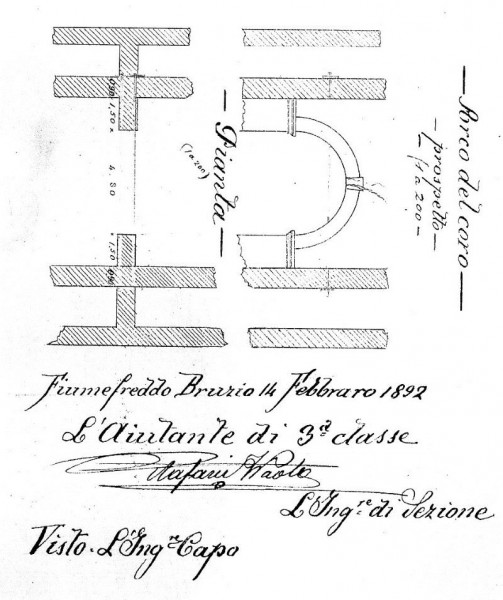 Arco del coro
prospetto
1 a 200
Pianta
(1 a 200)
1,50
4.80
1,50
Fiumefreddo Bruzio 14 Febbraro 1892
L'Aiutante di 3ª classe
L'Ingre di Sezione
Visto. L'Ingre Capo